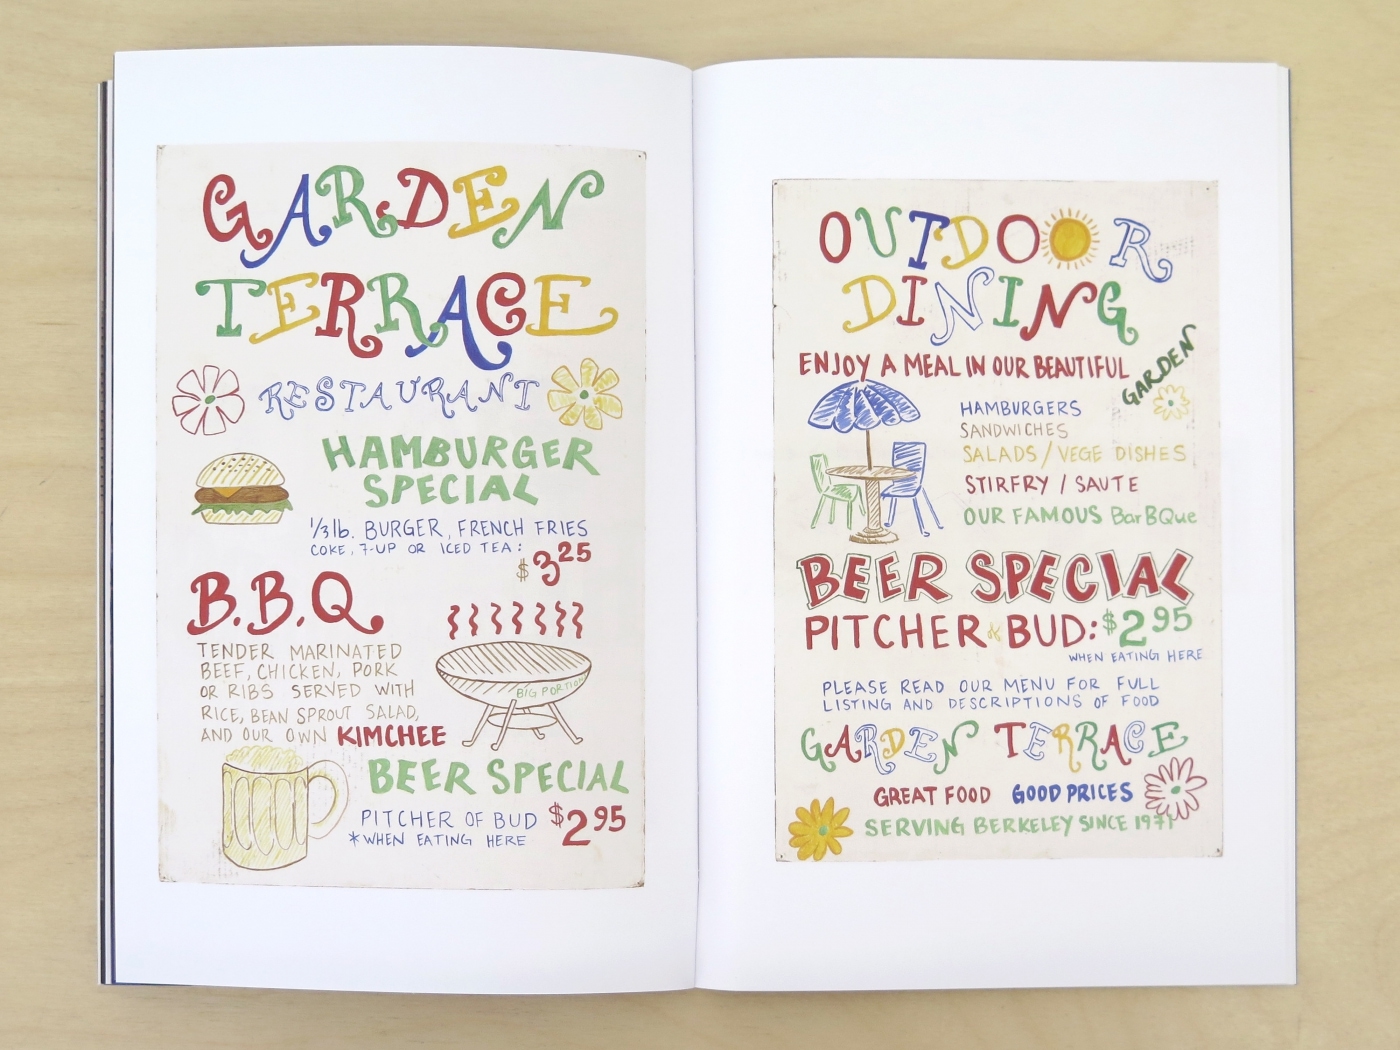 GARDEN
TERRACE
RESTAURANT
HAMBURGER
SPECIAL
1/3 lb. BURGER, FRENCH FRIES
COKE, 7-UP OR ICED TEA:
$3.25
B.B.Q
TENDER MARINATED
BEEF, CHICKEN, PORK
OR RIBS SERVED WITH
RICE, BEAN SPROUT SALAD,
AND OUR OWN KIMCHEE
BIG PORTION
BEER SPECIAL
PITCHER OF BUD $2.95
*WHEN EATING HERE
OUTDOOR
DINING
ENJOY A MEAL IN OUR BEAUTIFUL
GARDEN
HAMBURGERS
SANDWICHES
SALADS / VEGE DISHES
STIRFRY / SAUTE
OUR FAMOUS BarBQue
BEER SPECIAL
PITCHER of BUD: $2.95
WHEN EATING HERE
PLEASE READ OUR MENU FOR FULL
LISTING AND DESCRIPTIONS OF FOOD
GARDEN TERRACE
GREAT FOOD GOOD PRICES
SERVING BERKELEY SINCE 1971